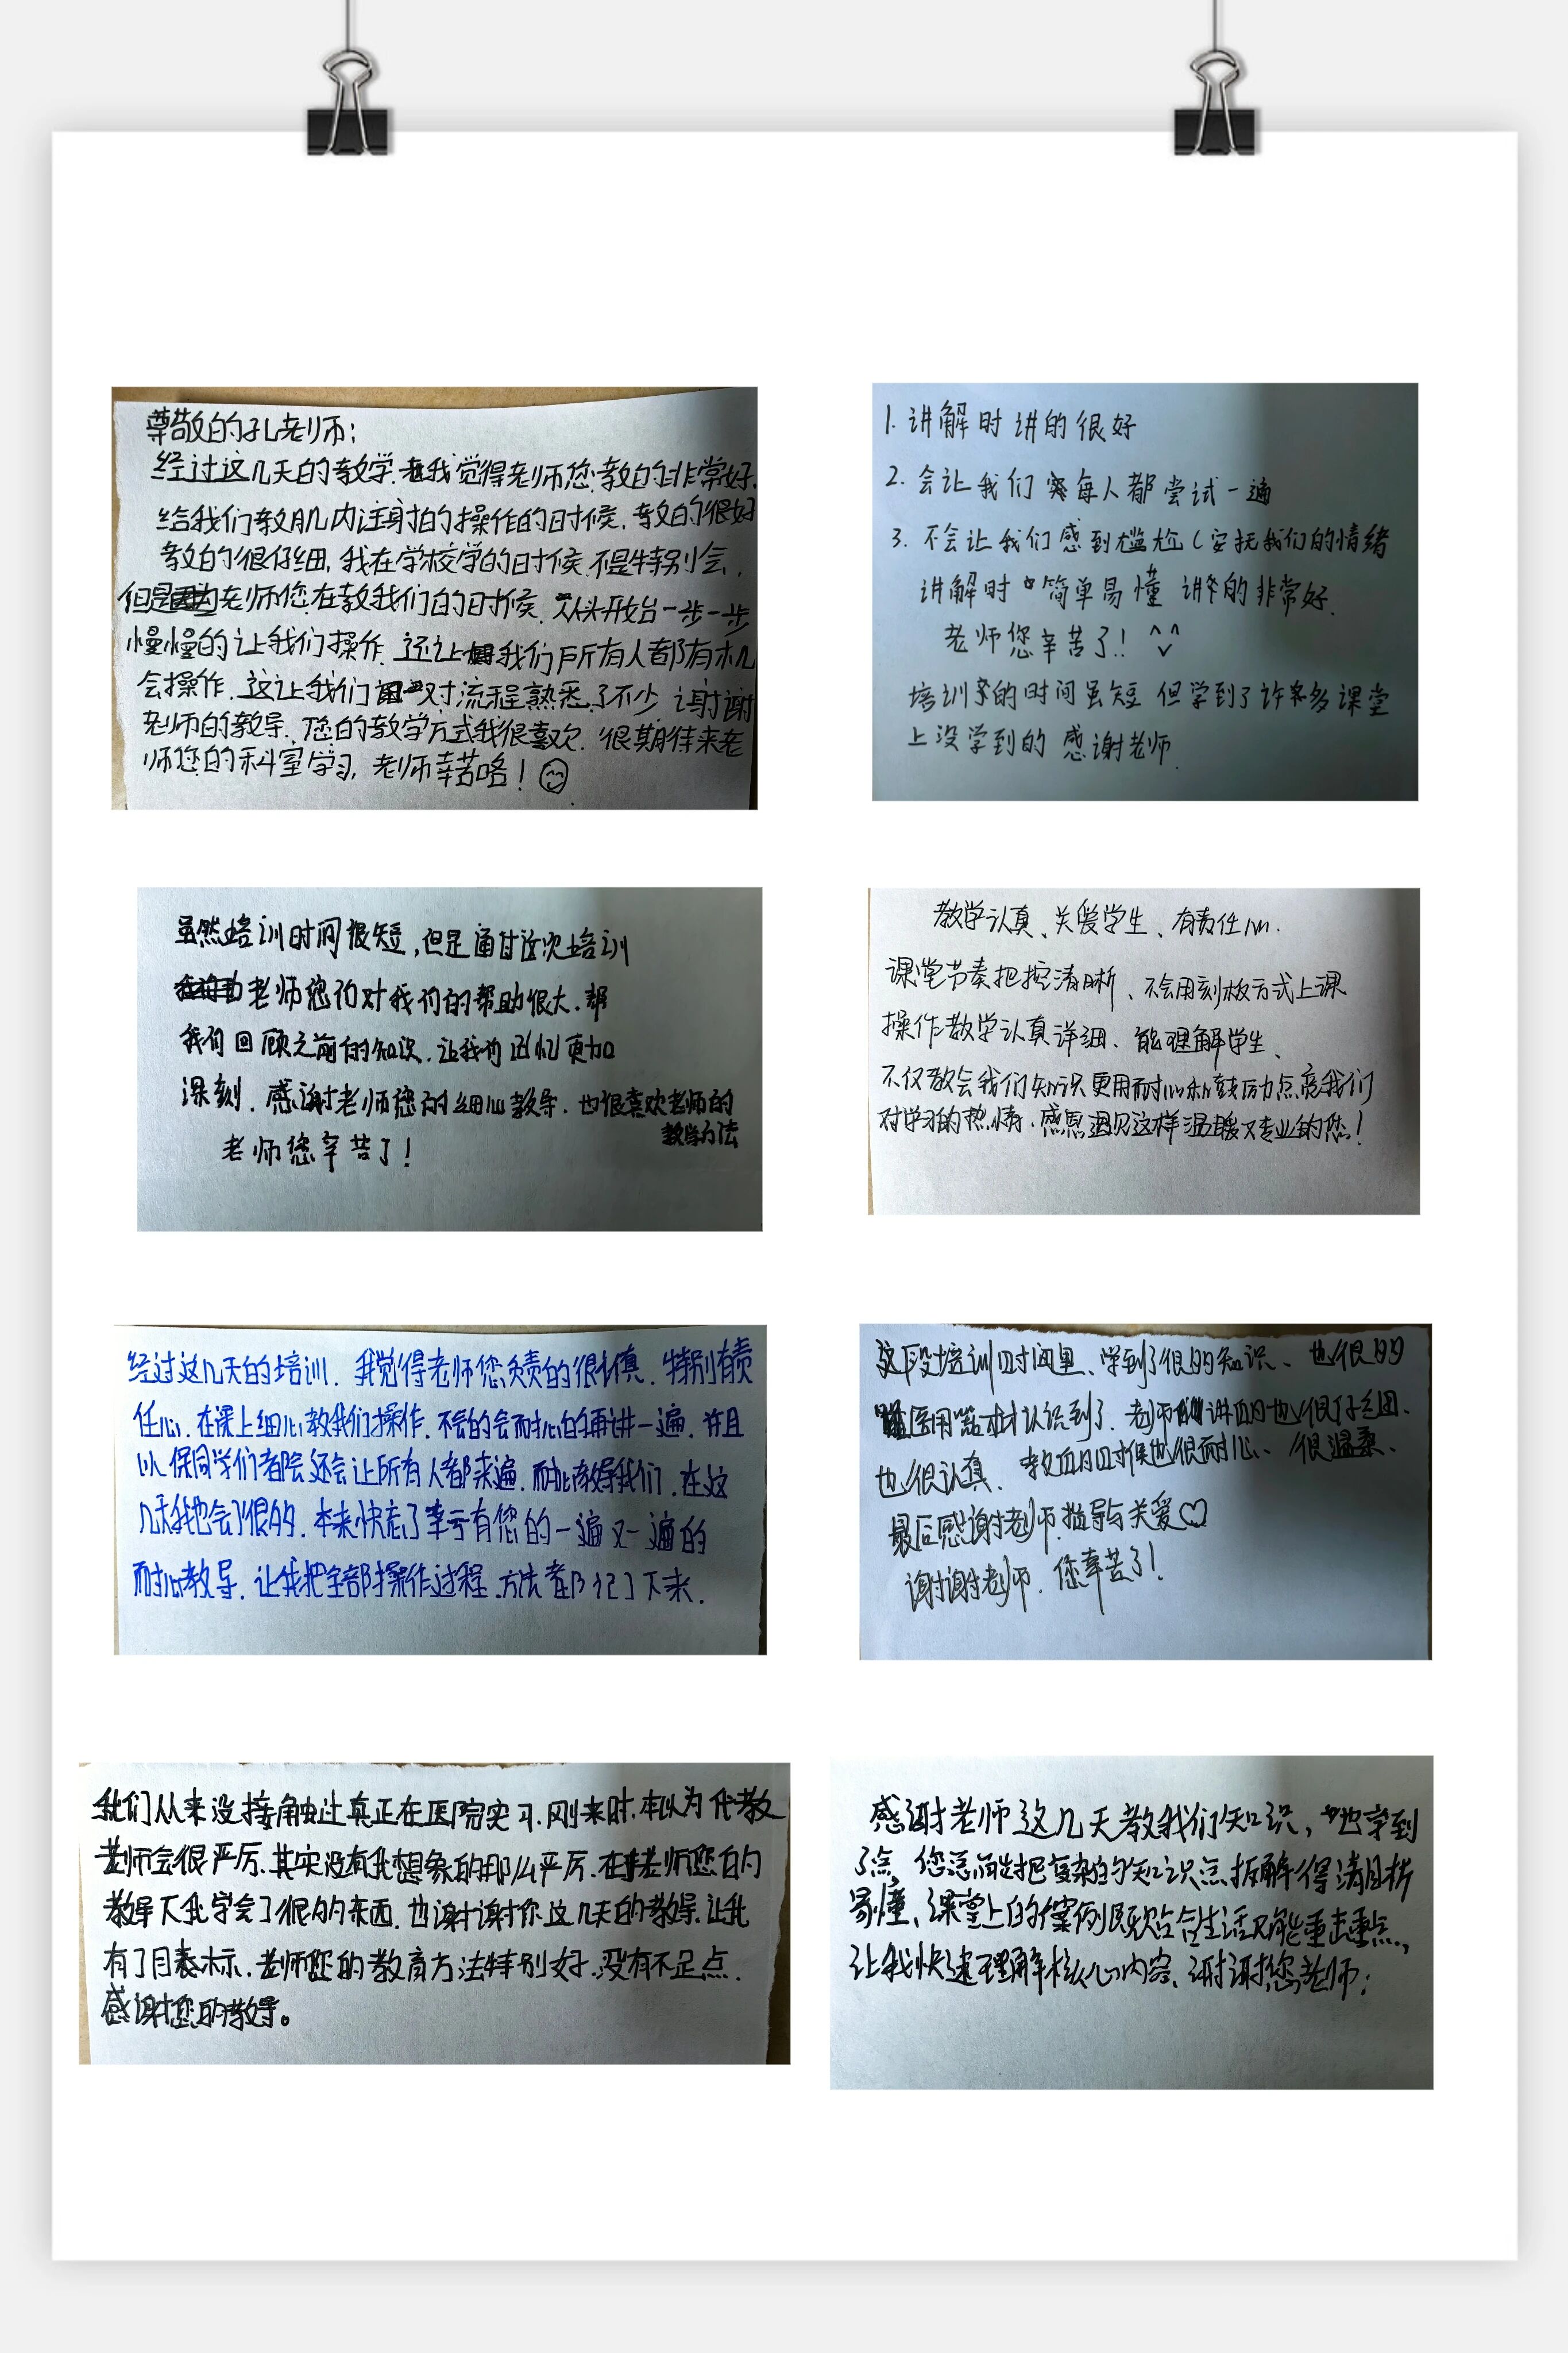 尊敬的孔老师：
经过这几天的教学，我觉得老师您教的非常好.
给我们教肌内注射的操作的时候，教的很好
教的很仔细，我在学校学的时候不是特别会，
但是老师您在教我们的时候，从头开始一步一步
慢慢的让我们操作，还让我们所有人都有机
会操作，这让我们对流程熟悉了不少，谢谢
老师的教导，您的教学方式我很喜欢，很期待来老
师您的科室学习，老师辛苦咯！
1. 讲解时讲的很好
2. 会让我们每人都尝试一遍
3. 不会让我们感到尴尬（安抚我们的情绪
讲解时简单易懂 讲的非常好.
老师您辛苦了！^^
培训的时间虽短 但学到了许多课堂
上没学到的 感谢老师.
虽然培训时间很短，但是通过这次培训
老师您的对我们的帮助很大，帮
我们回顾之前的知识，让我们回忆更加
深刻，感谢老师您的细心教导，也很喜欢老师的
教学方法
老师您辛苦了！
教学认真、关爱学生、有责任心.
课堂节奏把控清晰、不会用刻板方式上课
操作教学认真详细、能理解学生、
不仅教会我们知识更用耐心和鼓励点亮我们
对学习的热情，感恩遇见这样温暖又专业的您！
经过这几天的培训，我觉得老师您负责的很认真，特别有责
任心，在课上细心教我们操作，不会的会耐心的再讲一遍，并且
以保同学们都会还会让所有人都来遍，耐心教导我们，在这
几天我也会了很多，本来快忘了幸亏有您的一遍又一遍的
耐心教导，让我把全部操作过程、方法都记了下来.
这段培训时间里、学到了很多知识、也很多
医用器材认识到了，老师讲的也很仔细、
也很认真，教的时候也很耐心、很温柔、
最后感谢老师指导与关爱♡
谢谢老师，您辛苦了！
我们从来没接触过真正在医院实习，刚来时，本以为代教
老师会很严厉，其实没有我想象的那么严厉，在老师您的
教导下我学会了很多东西，也谢谢你这几天的教导，让我
有了目标，老师您的教育方法特别好，没有不足点.
感谢您的教导。
感谢老师这几天教我们知识，也学到
了点，您总能把复杂的知识点拆解得清晰
易懂、课堂上的案例既贴合生活又能重击重点，
让我快速理解核心内容、谢谢您老师；